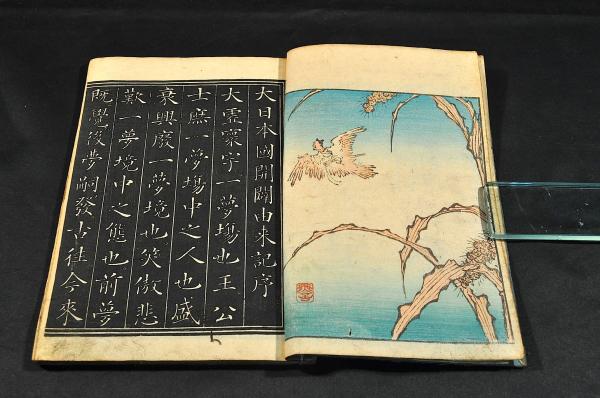 大日本國開闢由来記序
大虛寰宇一夢場也王公
士庶一夢場中之人也盛
衰興廢一夢境也笑傲悲
歎一夢境中之態也前夢
既覺後夢嗣發古往今來